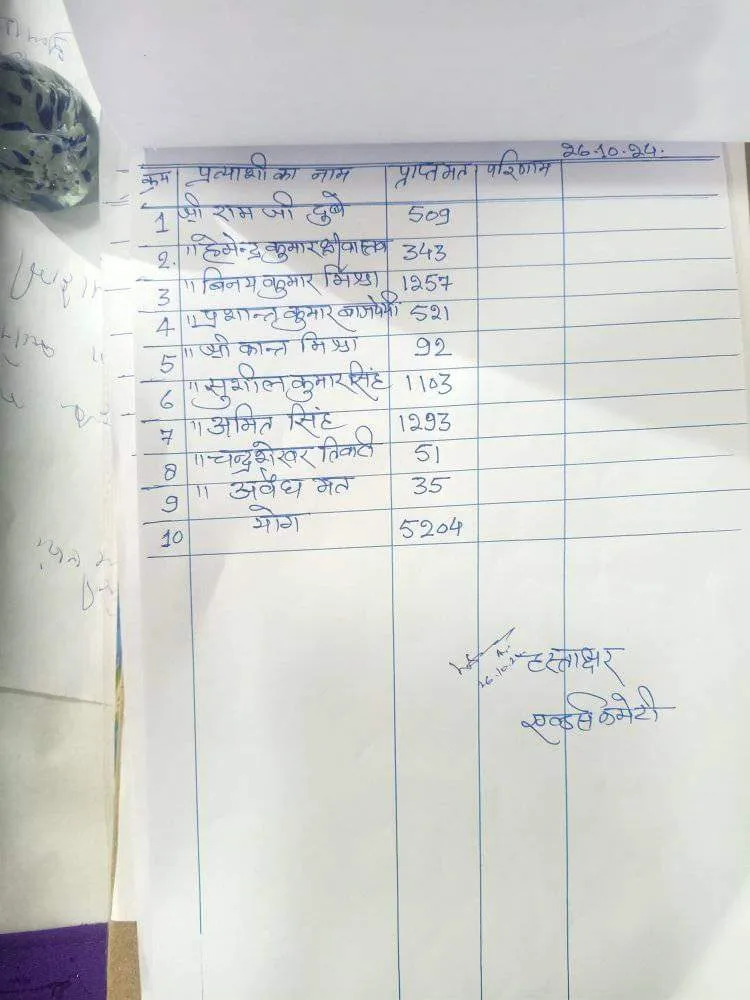 26.10.24.
क्रम प्रत्याशी का नाम प्राप्त मत परिणाम
1 श्री राम जी दुबे 509
2. " हेमेन्द्र कुमार श्रीवास्तव 343
3 " बिनय कुमार मिश्रा 1257
4 " प्रशान्त कुमार बाजपेयी 521
5 " श्री कान्त मिश्रा 92
6 " सुशील कुमार सिंह 1103
7 " अमित सिंह 1293
8 " चन्द्रशेखर तिवारी 51
9 " अवैध मत 35
10 योग 5204
हस्ताक्षर
26.10.24
एल्डर्स कमेटी